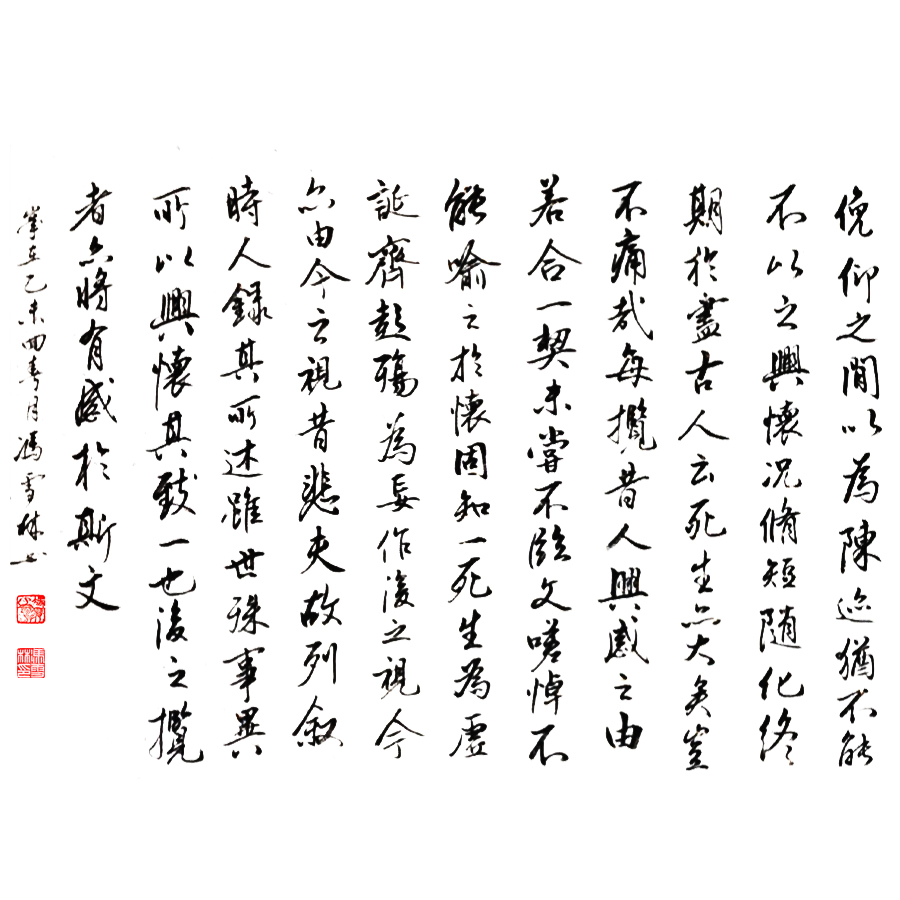 俛仰之間以為陳迹猶不能
不以之興懷况脩短隨化終
期於盡古人云死生亦大矣豈
不痛哉每攬昔人興感之由
若合一契未嘗不臨文嗟悼不
能喻之於懷固知一死生為虛
誕齊彭殤為妄作後之視今
亦由今之視昔悲夫故列叙
時人録其所述雖世殊事異
所以興懷其致一也後之攬
者亦將有感於斯文
歲在乙未四春月馮雪林书